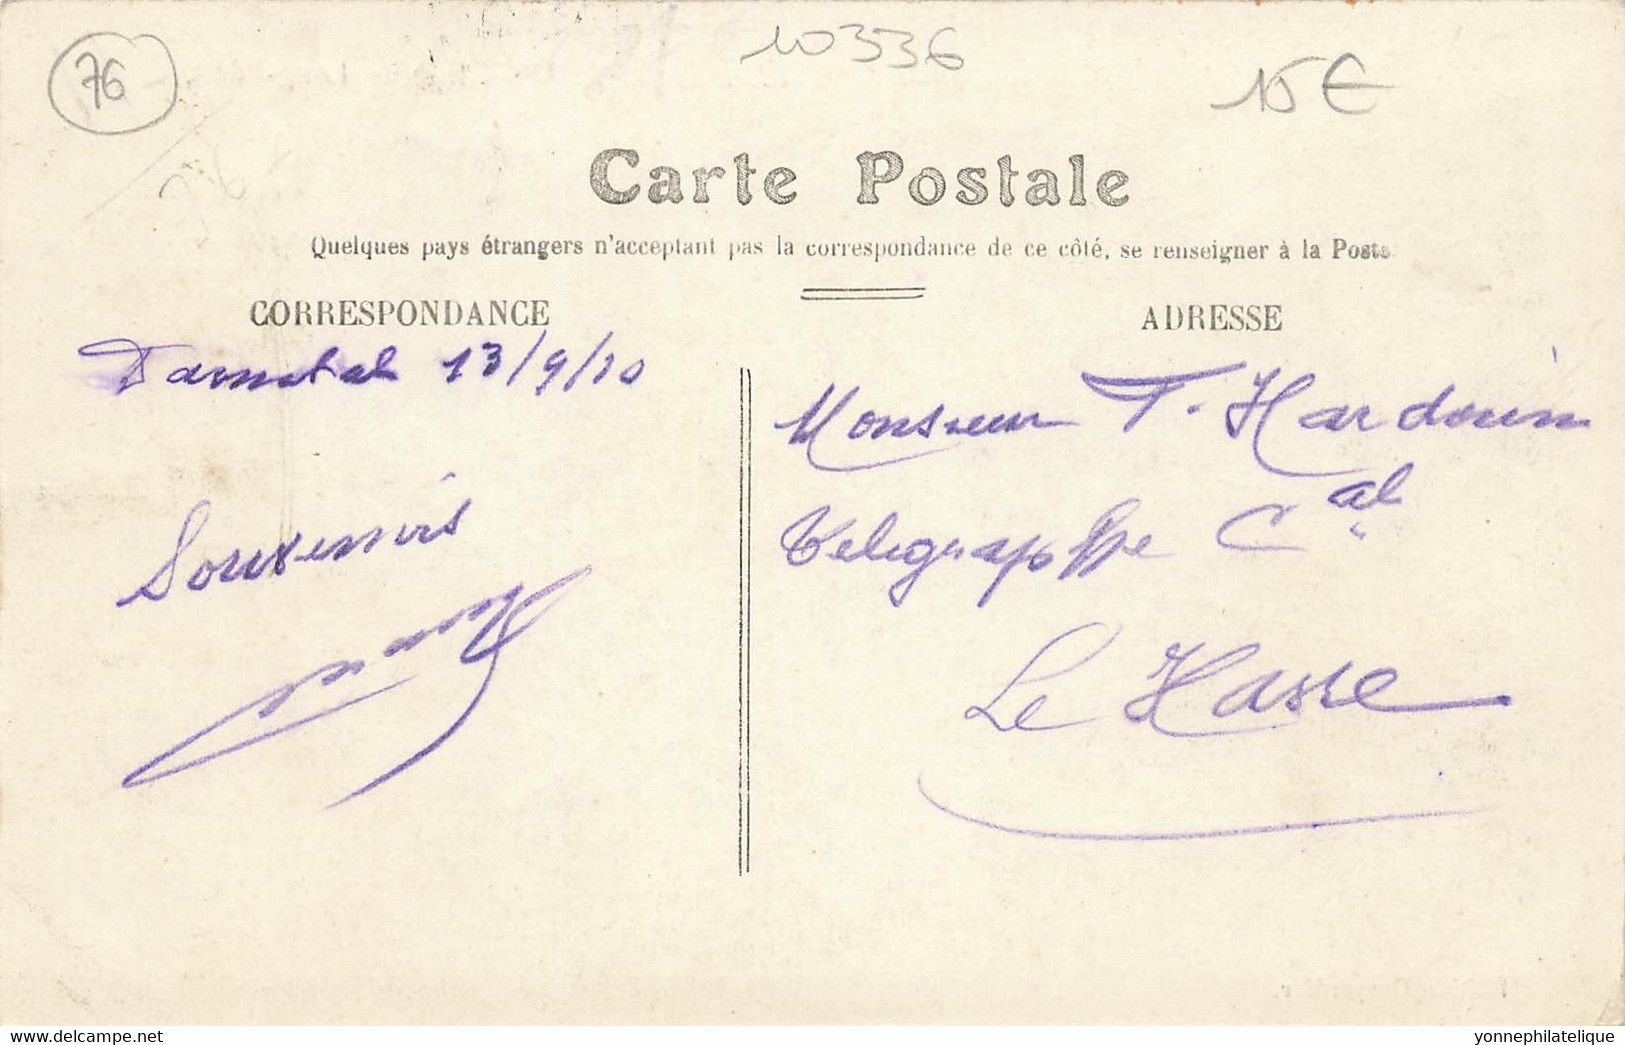 76
10336
15 €
Carte Postale
Quelques pays étrangers n'acceptant pas la correspondance de ce côté, se renseigner à la Poste.
CORRESPONDANCE
Darnetal 13/9/10
Souvenirs
ADRESSE
Monsieur T. Hardouin
Telegraphe Cal
Le Havre
www.delcampe.net
yonnephilatelique